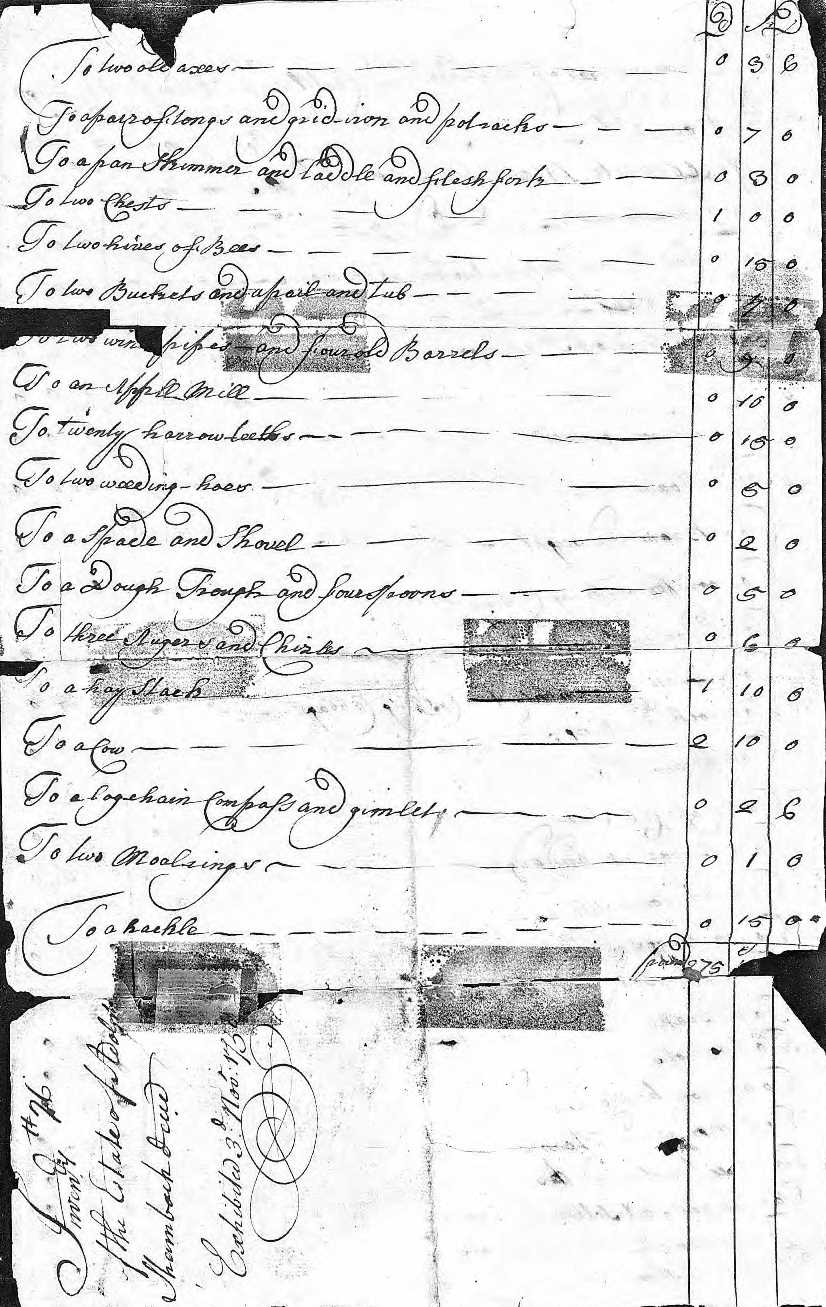 £ s D
To two old axes — 0 3 6
To a pair of tongs and grid-iron and potracks — 0 7 0
To a pan Skimmer and laddle and fleshfork — 0 3 0
To two Chests — 1 0 0
To two hives of Bees — 0 15 0
To two Buckets and a pail and tub — 0 0
To two wine pipes and four old Barrels — 0 9 0
To an Appll Mill — 0 10 0
To twenty harrow teeths — 0 15 0
To two weeding-hoes — 0 5 0
To a Spade and Shovel — 0 2 0
To a Dough Trough and four Spoons — 0 5 0
To three Augers and Chizles — 0 6 0
To a hay Stack — 1 10 0
To a Cow — 2 10 0
To a log chain Compass and gimlet — 0 2 6
To two Moalrings — 0 1 0
To a hackle — 0 15 0
75
Inven'y
of the Estate of
Shambach Dec'd
Exhibited 3d Nov'r